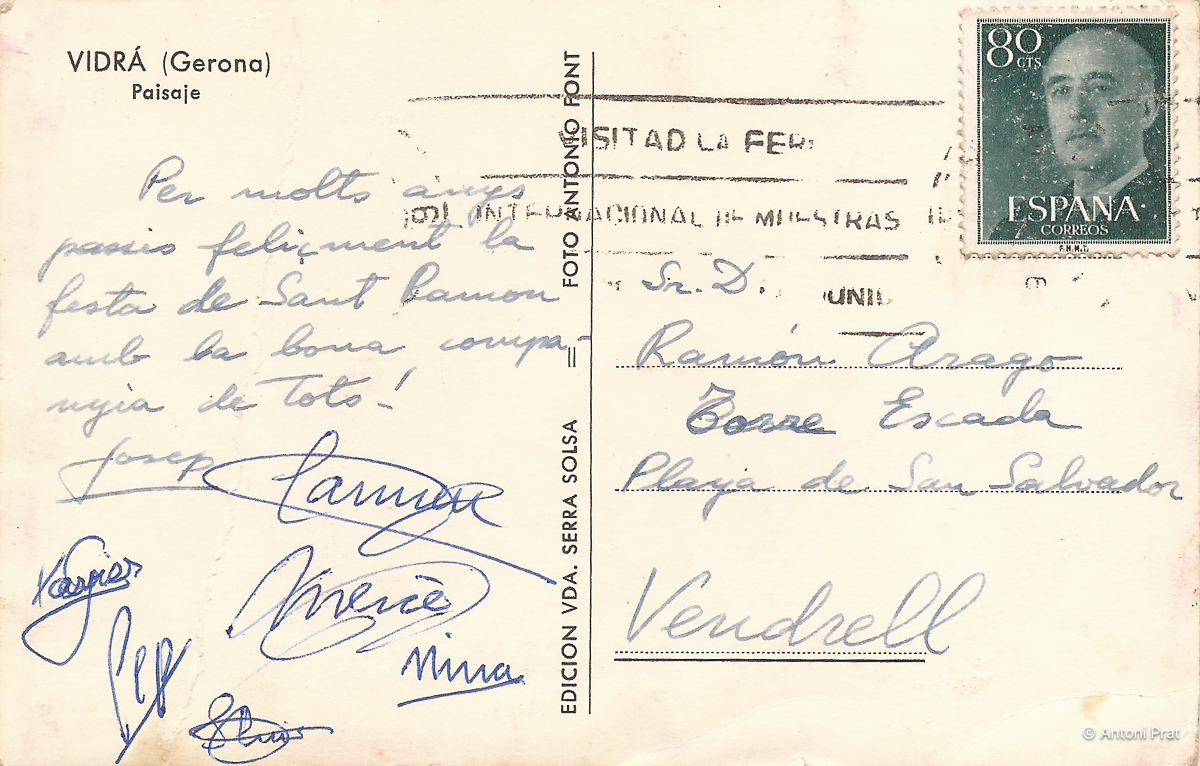 VIDRÁ (Gerona)
Paisaje
Per molts anys
passis feliçment la
festa de Sant Ramon
amb la bona compa-
nyia de Tots!
Josep
Carmen
Xavier
Mercè
Pep
Nina
EDICION VDA. SERRA SOLSA = FOTO ANTONIO FONT
80
CTS
ESPAÑA
CORREOS
F.N.M.T.
VISITAD LA FERI
INTERNACIONAL DE MUESTRAS
JUNIO
Sr. D.
Ramón Arago
Torre Escada
Playa de San Salvador
Vendrell
© Antoni Prat